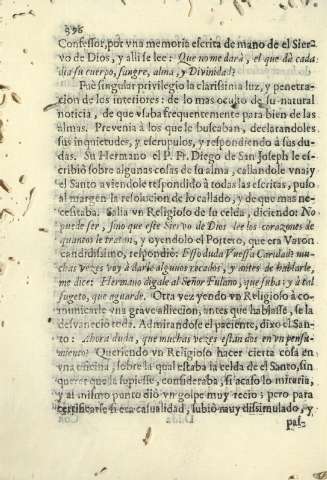 996
Confessor, por vna memoria escrita de mano de el Sier-
vo de Dios, y alli se lee: Que no me darà, el que dà cada
dia su cuerpo, sangre, alma, y Divinidad?
Fuè singular privilegio la clarissima luz, y penetra-
cion de los interiores: de lo mas oculto de su natural
noticia, de que vsaba frequentemente para bien de las
almas. Prevenia à los que le buscaban, declarandoles
sus inquietudes, y escrupulos, y respondiendo à sus du-
das. Su Hermano el P. Fr. Diego de San Joseph le es-
cribiò sobre algunas cosas de su alma, callandole vna, y
el Santo aviendole respondido à todas las escritas, puso
al margen la resolucion de lo callado, y de que mas ne-
cesitaba. Salia vn Religioso de su celda, diciendo: No
puede ser, sino que este Siervo de Dios lee los corazones de
quantos le tratan, y oyendolo el Portero, que era Varon
candidissimo, respondiò: Esso duda Vuessa Caridad? mu-
chas vezes voy à darle algunos recados, y antes de hablarle,
me dice: Hermano digale al Señor Fulano, que suba, y à tal
sugeto, que aguarde. Otra vez yendo vn Religioso à co-
municarle vna grave afliccion, antes que hablasse, se la
desvaneciò toda. Admirandose el paciente, dixo el San-
to: Ahora duda, que muchas vezes están dos en vn pensa-
miento? Queriendo vn Religioso hacer cierta cosa en
vna oficina, sobre la qual estaba la celda de el Santo, sin
querer que la supiesse, consideraba, si acaso lo miraria,
y al mismo punto diò vn golpe muy recio; pero para
certificarse si era casualidad, subiò muy dissimulado, y
pas-